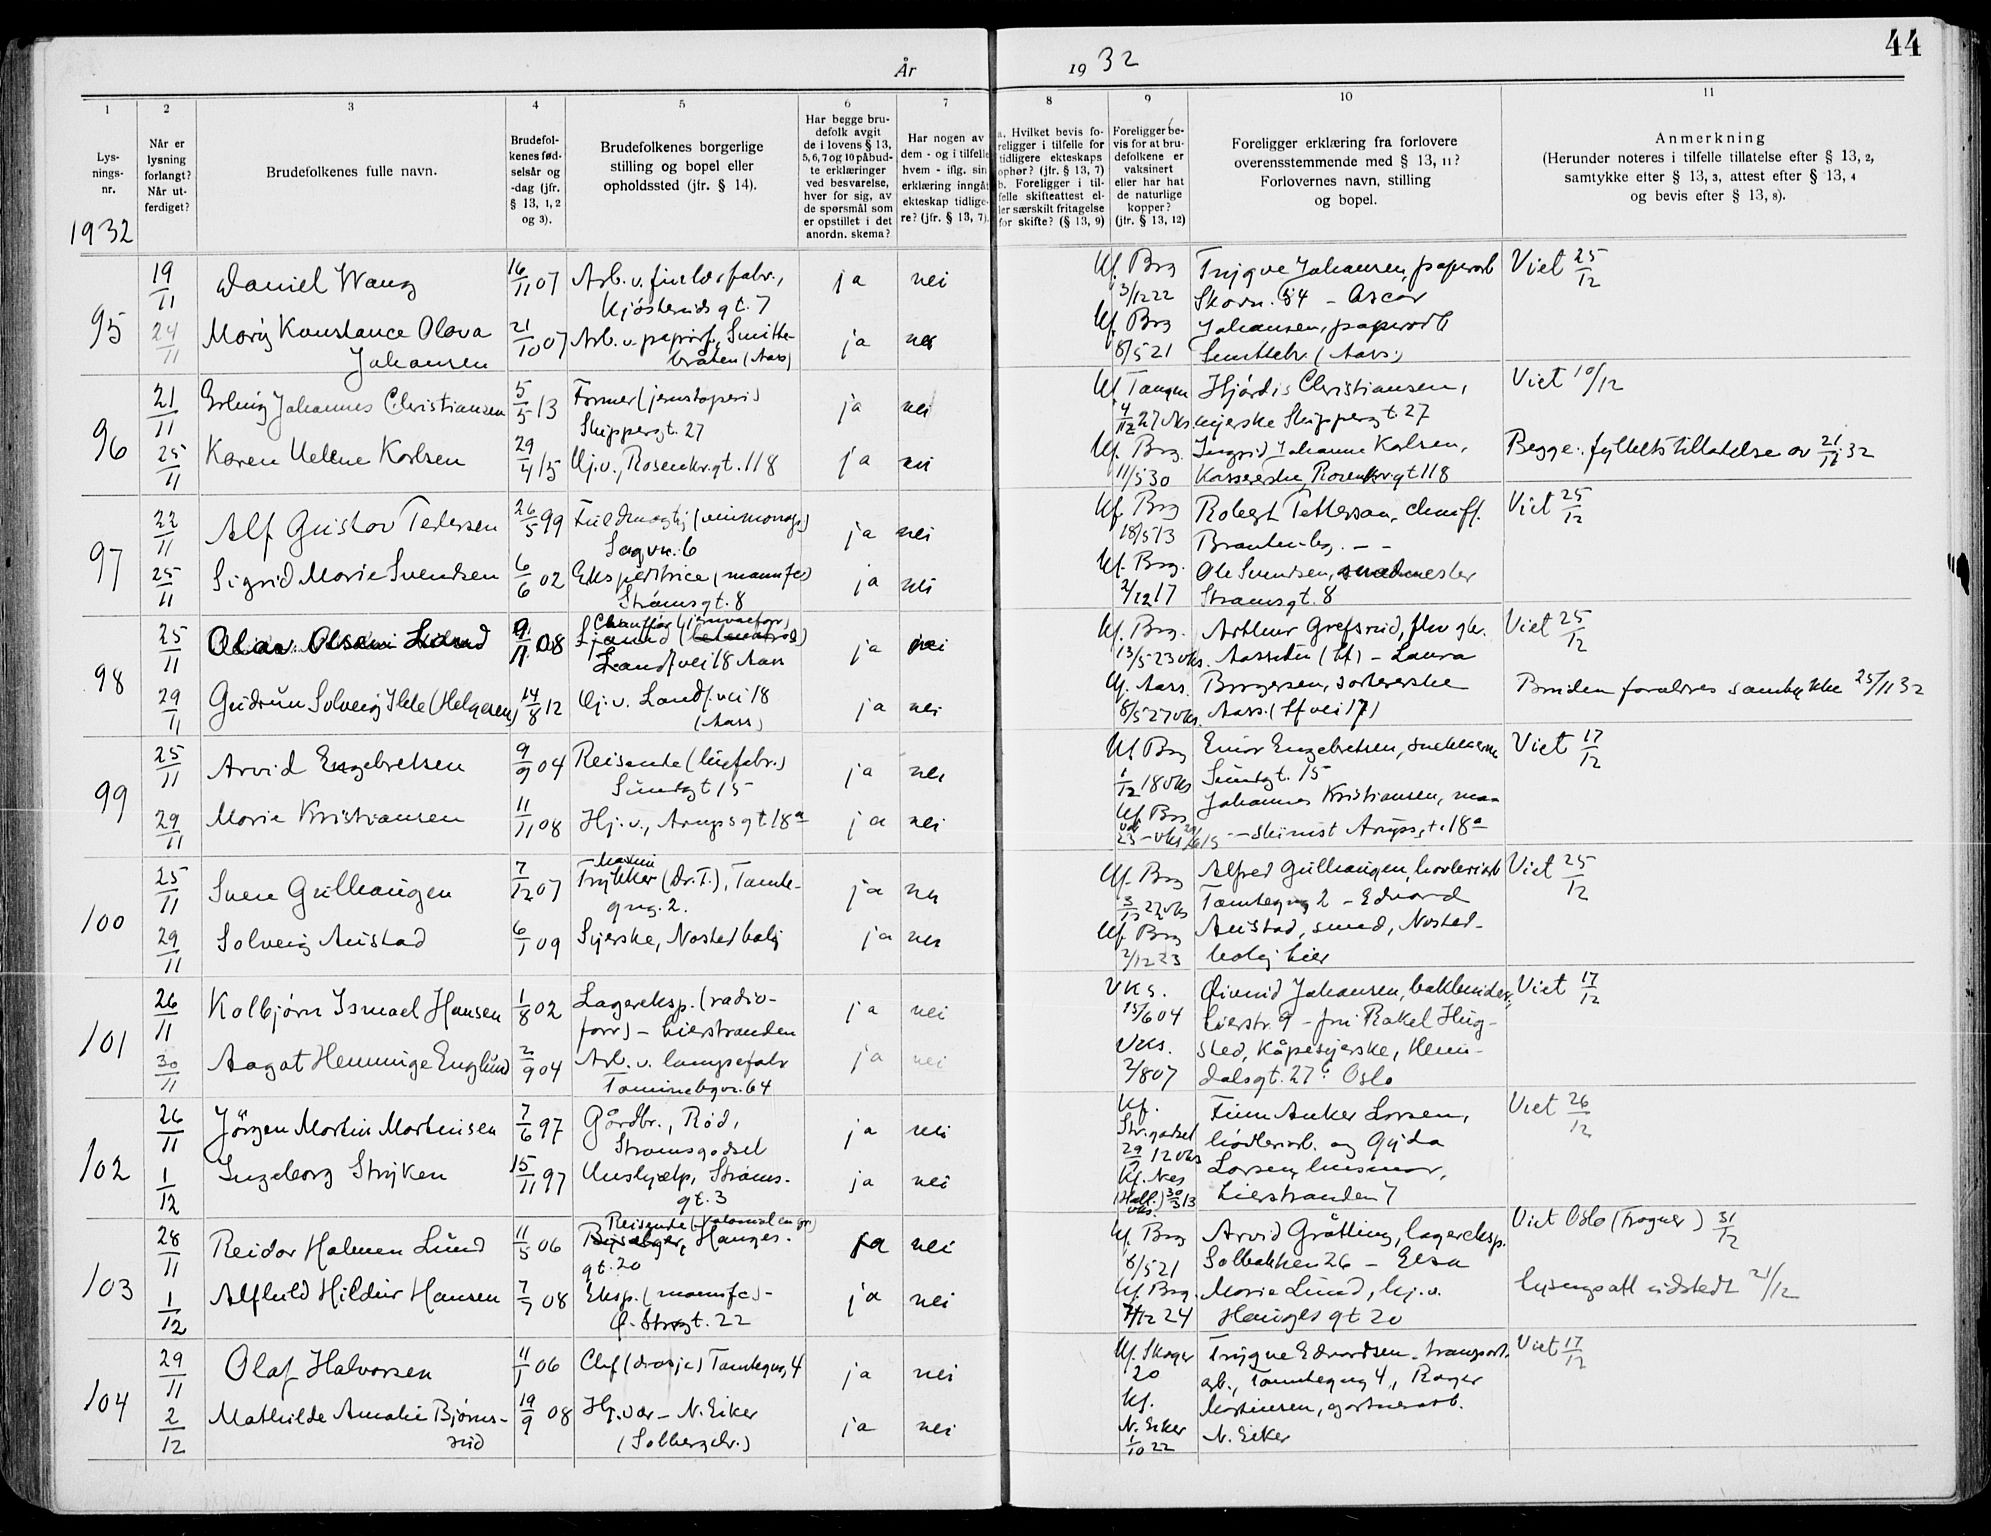 44
År 1932
1
2
3
4
5
6
7
8
9
10
11
Lys-
nings-
nr.
Når er
lysning
forlangt?
Når ut-
ferdiget?
Brudefolkenes fulle navn.
Brudefol-
kenes fød-
selsår og
-dag (jfr.
§ 13, 1, 2
og 3).
Brudefolkenes borgerlige
stilling og bopel eller
opholdssted (jfr. § 14).
Har begge bru-
defolk avgit
de i lovens § 13,
5, 6, 7 og 10 påbud-
te erklæringer
ved besvarelse,
hver for sig, av
de spørsmål som
er opstillet i det
anordn. skema?
Har nogen av
dem - og i tilfelle
hvem - iflg. sin
erklæring inngåt
ekteskap tidlige-
re? (jfr. § 13, 7).
a. Hvilket bevis fo-
religger i tilfelle for
tidligere ekteskaps
ophør? (jfr. § 13, 7)
b. Foreligger i til-
felle skifteattest el-
ler særskilt fritagelse
for skifte? (§ 13, 9)
Foreligger be-
vis for at bru-
defolkene er
vaksinert
eller har hat
de naturlige
kopper?
(jfr. § 13, 12)
Foreligger erklæring fra forlovere
overensstemmende med § 13, 11?
Forlovernes navn, stilling
og bopel.
Anmerkning
(Herunder noteres i tilfelle tillatelse efter § 13, 2,
samtykke efter § 13, 3, attest efter § 13, 4
og bevis efter § 13, 8).
1932
95
19/11 Daniel Wang 16/11 07 Arb. v.
Kjøsterudsgt. 7
ja nei
Kf. Brg 3/12 22 Trygve Johansen, paperarb
Skovv. 84 - Oscar
Viet 25/12
24/11 Mary Konstance Olava
Johansen
21/10 07 Arb. v. papirf., Smitte-
bråten (Aass)
ja nei
Kf. Brg 8/5 21 Johansen, paperarb
(Aass.)
96
21/11 Erling Johannes Christiansen 5/5 13 Former (jernstøperi)
Skippergt. 27
ja nei
Kf Tangen 4/12 27 vks. Hjørdis Christiansen,
syerske Skippergt. 27
Viet 10/12
25/11 Karen Helene Karlsen 29/4 15 Hj.v., Rosenkr.gt. 118
ja nei
Kf. Brg. 11/5 30 Ingrid Johanne Karlsen,
Kassererske Rosenkr.gt 118
Begge: fylkets tilladelse av 21/11 32
97
22/11 Alf Gustav Pedersen 26/5 99 Fuldmegtig
Sagvn. 6
ja nei
Kf Brg 18/5 13 Robert Petterson,
Viet 25/12
25/11 Sigrid Marie Svendsen 6/6 02 Ekspeditrice (mannfkt)
Strømsgt. 8
ja nei
Kf. Brg. 2/12 17 Ole Svendsen,
Strømsgt. 8
98
25/11 08 Chauffør
Landf.vei 18 Aass
ja nei
Kf. Brg. 13/5 23 vks. Arthur Grefsrud,
- Laura
Viet 25/12
29/11 Gudrun Solveig (Helgesen) 14/8 12 Hj. v. Landf.vei 18
(Aass)
ja nei
Kf. Aass. 8/5 27 vks. Borgersen, sorterske
Aass.
Bruden forældres samtykke 25/11 32
99
25/11 Arvid Engebretsen 9/9 04 Reisende
Sundgt 15
ja nei
Kf Brg 1/12 18 vks Einar Engebretsen,
Sundgt. 15
Viet 17/12
29/11 Marie Kristiansen 11/11 08 Hj. v., Arupsgt. 18 a
ja nei
Kf Brg Johannes Kristiansen, ma-
skinist Arupsgt. 18 a
100
25/11 Svein Gulhaugen 7/12 07 Maskin
Trykker (Dr. T.), Tamte-
gng. 2.
ja nei
Kf. Brg 3/12 22 vks Alfred Gulhaugen, høvleriarb
Tamtegng 2 - Edvard
Viet 25/12
29/11 Solveig Austad 6/1 09 Syerske, Nøsted bolig
ja nei
Kf. Brg 2/12 23 Austad, smed, Nøsted-
bolig Lier
101
26/11 Kolbjørn Ismael Hansen 1/8 02 Lagereksp. (radio-
forr) - Lierstranden
ja nei
Vks. 15/6 04 Øivind Johansen, bokbinder,
Lierstr. 9 - frk Rakel Hug-
Viet 17/12
30/11 Aagot Hemminge Englund 2/9 04 Arb. v. lampefabr
64
ja nei
Vks. 2/8 07 sted, Kåpesyerske, Heim-
dalsgt. 27 b Oslo
102
26/11 Jørgen Martin Martinsen 7/6 97 Gårdbr., Rød,
Strømsgodset
ja nei
Kf. Str.godset 29/9 12 vks Finn Anker Larsen,
høvleriarb. og Gyda
Viet 26/12
1/12 Ingeborg Stryken 15/11 97 Hushjælp, Strøms-
gt. 3
ja nei
Kf. Nes (Hall.) 30/3 13 vks. Larsen, husmor,
Lierstranden 7
103
28/11 Reidar Holmen Lund 11/5 06 Reisende (Kolonial en gr)
Hauges-
gt. 20
ja nei
Kf. Brg 8/5 21 Arvid Gråtting, lagereksp.
Solbakken 26 - Elsa
Viet Oslo (Frogner) 31/12
1/12 Alfhild Hildur Hansen 7/7 08 Eksp. (mannfkt) -
Ø. Storgt. 22
ja nei
Kf. Brg. 7/12 24 Marie Lund, hj. v.
Hauges gt 20
lysingsatt utstedt 21/12
104
29/11 Olaf Halvorsen 11/1 06 Chf (drosje) Tamtegng. 4
ja nei
Kf. Skoger 20 Trygve Edvardsen - transport-
arb., Tamtegng 4, Roger
Viet 17/12
2/12 Mathilde Amalie Bjørns-
rud
19/9 08 Hj. vær - N. Eiker
(Solbergelv.)
ja nei
Kf. N. Eiker 1/10 22 Martinsen, gartnerarb.
N. Eiker